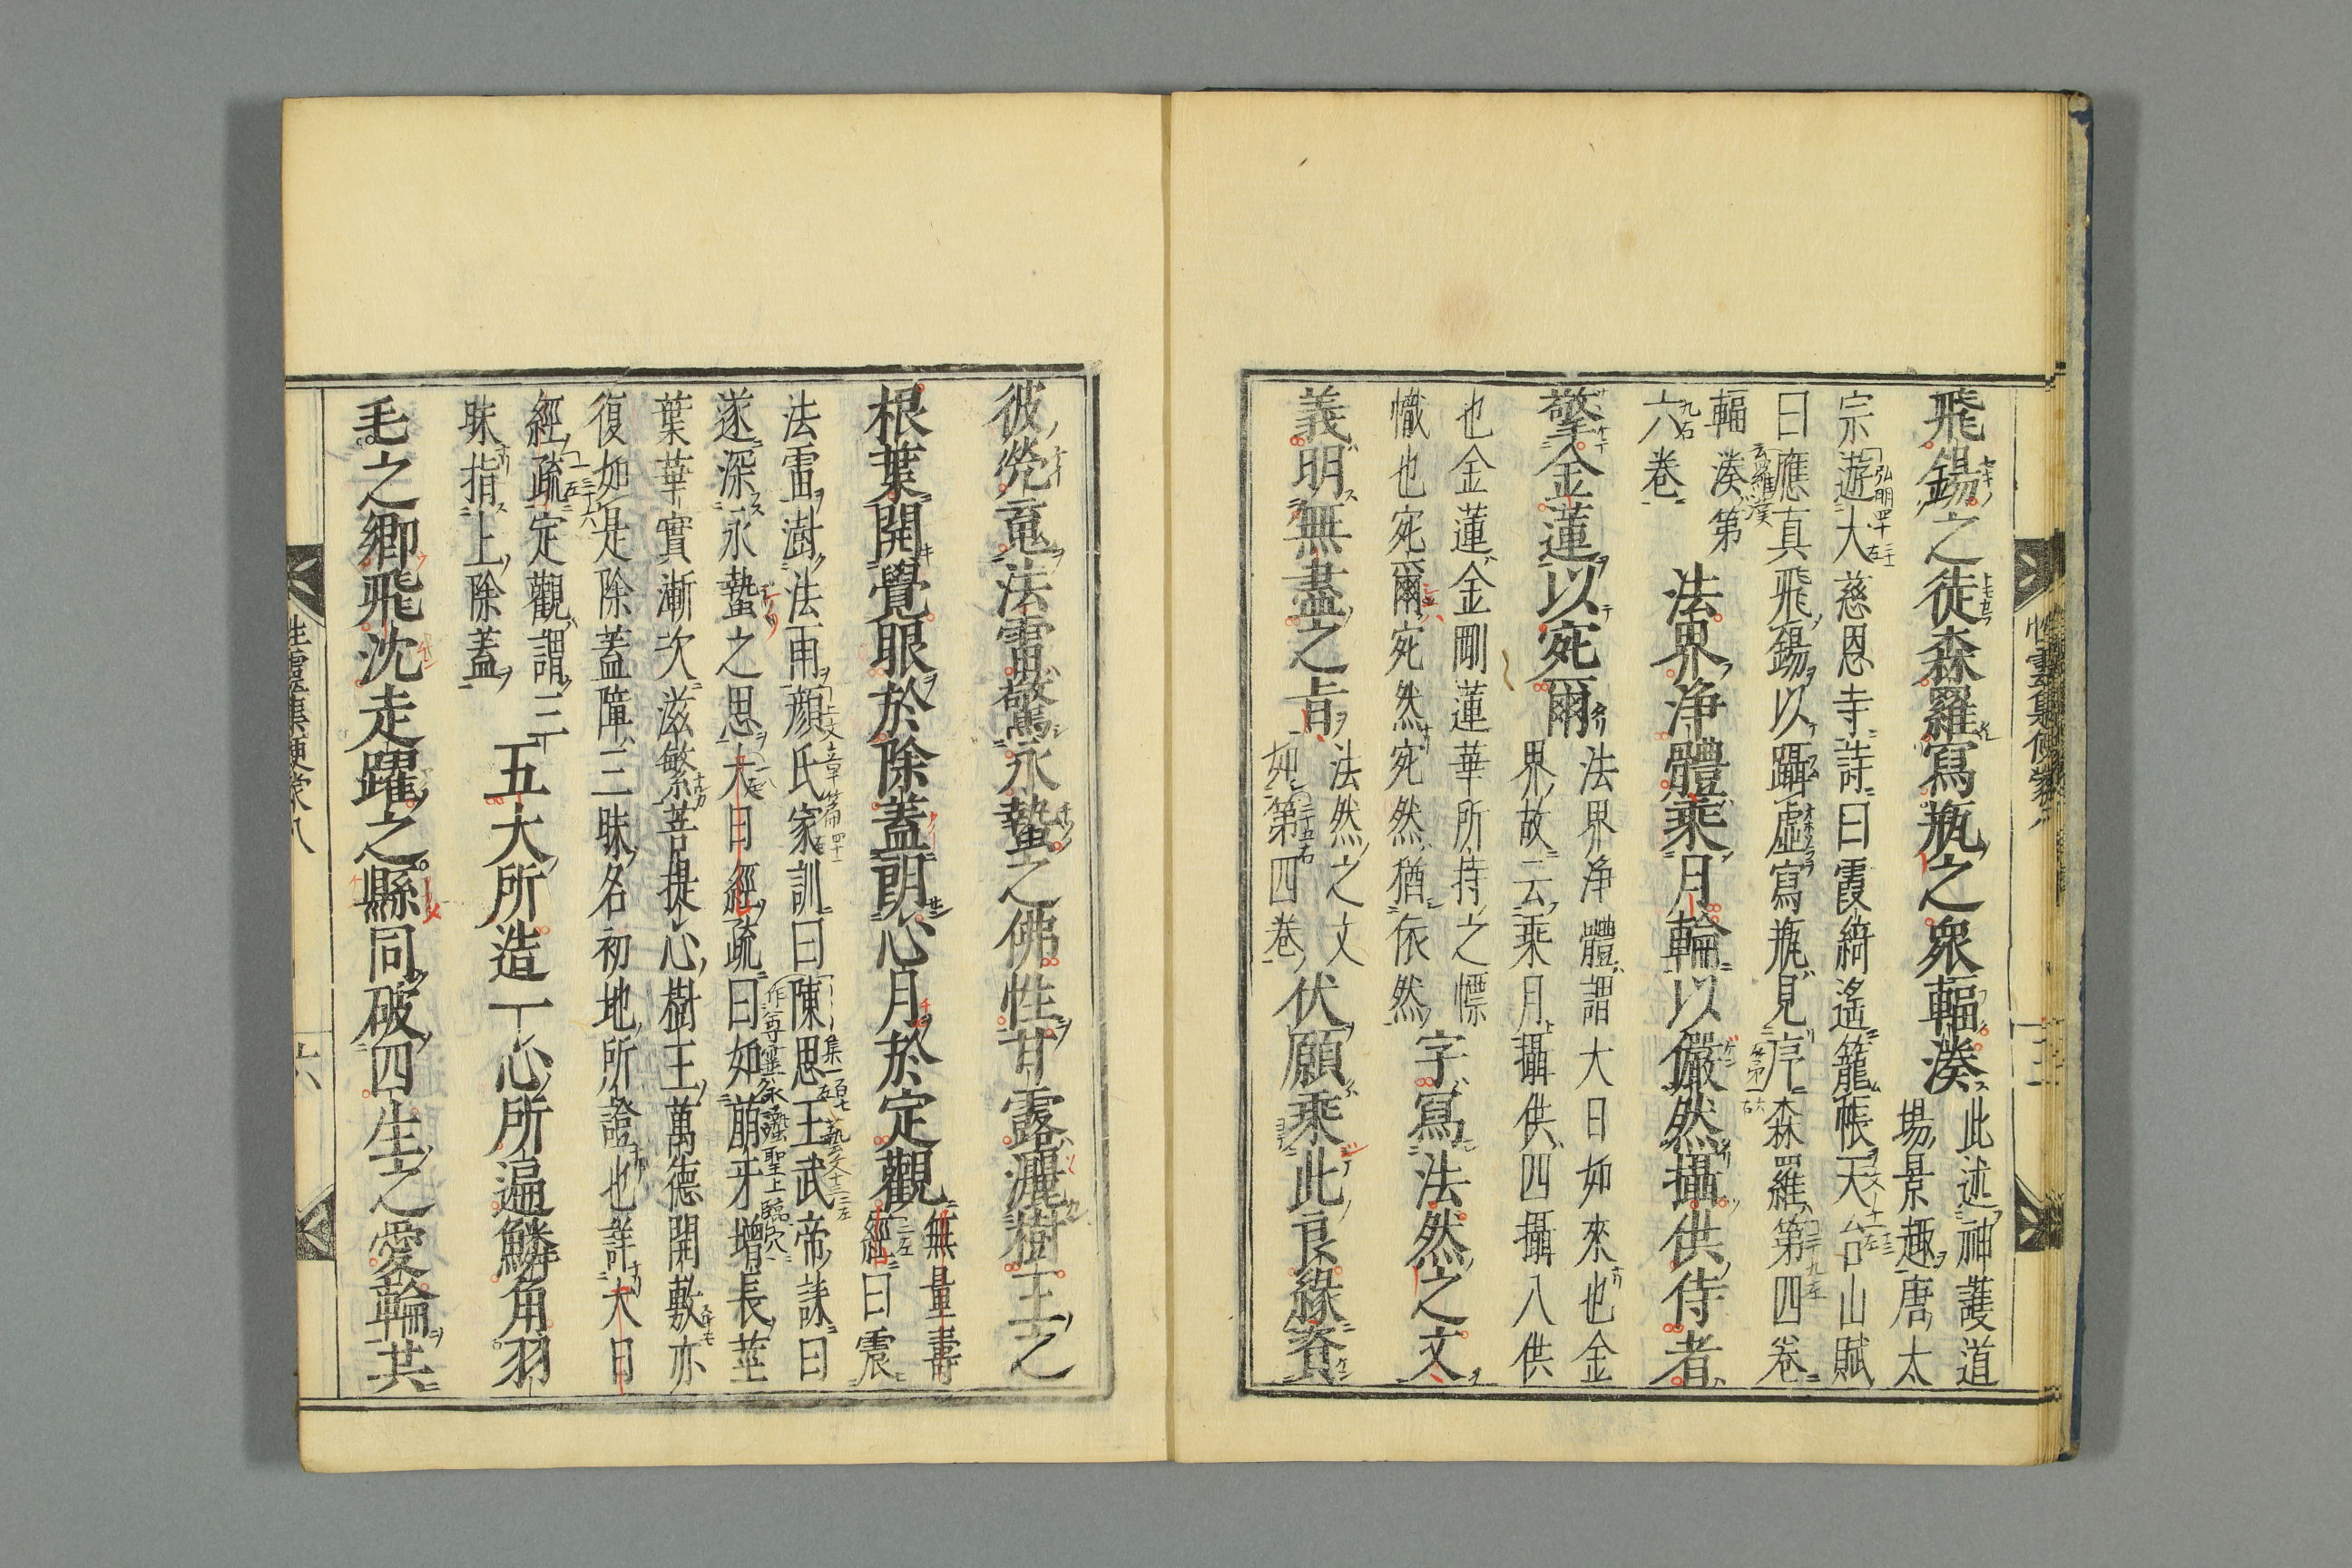 飛錫之徒森羅寫瓶之衆輻湊此述神護道
場景趣唐太
宗遊大慈恩寺詩曰霞綺遙籠帳天台山賦
曰應真飛錫以躡虛寫瓶見序森羅第四卷
輻湊第
六卷
法界淨體乘月輪以儼然攝供侍者
擎金蓮以宛爾法界淨體謂大日如來也金
界故云乘月攝供四攝八供
也金蓮金剛蓮華所持之幖
幟也宛爾宛然宛然猶依然字寫法然之文
義明無盡之旨法然之文
如第四卷伏願乘此良緣資
彼煢䰟法雷驚永蟄之佛性甘露灑樹王之
根葉開覺眼於除蓋朗心月於定觀無量壽
經曰震
法雷澍法雨顏氏家訓曰陳思王武帝誄曰
遂深永蟄之思大日經疏曰如萠牙增長莖
葉華實漸次滋繁菩提心樹王萬德開敷亦
復如是除蓋障三昧名初地所證也詳大日
經疏定觀謂三
昧指上除蓋五大所造一心所遍鱗角羽
毛之鄉飛沈走躍之縣同破四生之愛輪共
性靈集便蒙八